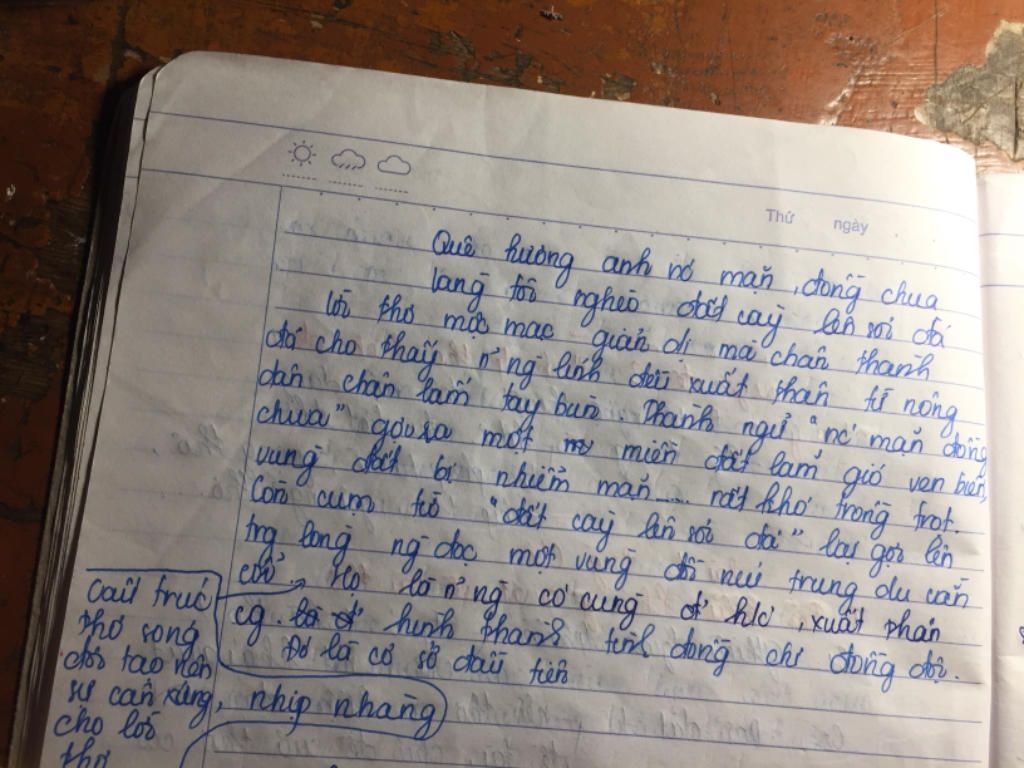 Thứ ngày
Quê hương anh nc' mặn, đồng chua
làng tôi nghèo đất cày lên sỏi đá
lời thơ mộc mạc giản dị mà chân thành
đã cho thấy n~ ng lính đều xuất thân từ nông
dân chân lấm tay bùn Thành ngữ "nc' mặn đồng
chua" gợi ra một miền đất lắm gió ven biển,
vùng đất bị nhiễm mặn .... rất khó trồng trọt.
Còn cụm từ "đất cày lên sỏi đá" lại gợi lên
trg lòng ng đọc một vùng đồi núi trung du cằn
cỗi. Họ là n~ ng có cùng xuất thân
cg. hình thành tình đồng chí đồng đội.
Đó là cơ sở đầu tiên
cấu trúc
thơ song
đôi tạo nên
sự cân xứng, nhịp nhàng
cho lời
thơ